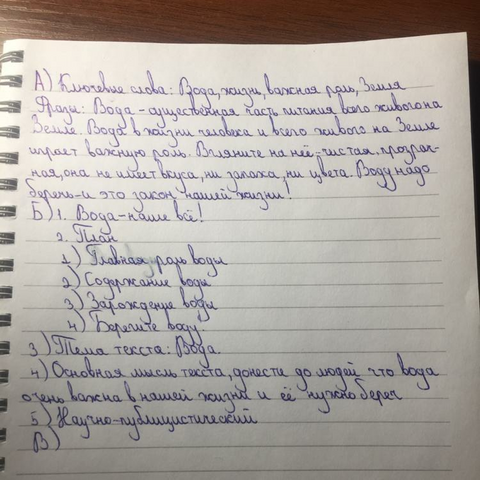 А) Ключевые слова: Вода, жизни, важная роль, Земля
Фразы: Вода - существенная часть питания всего живого на
Земле. Вода в жизни человека и всего живого на Земле
играет важную роль. Вгляните на неё - чистая, прозрач-
ная, она не имеет вкуса, ни запаха, ни цвета. Воду надо
беречь - и это закон нашей жизни!
Б) 1. Вода - наше всё!
2. План
1) Главная роль воды
2) Содержание воды
3) Зарождение воды
4) Берегите воду.
3) Тема текста: Вода.
4) Основная мысль текста, донести до людей что вода
очень важна в нашей жизни и её нужно береч
5) Научно-публицистический
В)